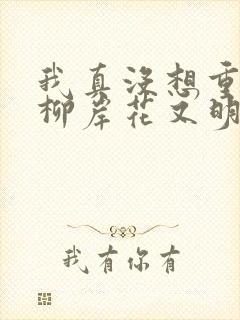 我真没想重
柳岸花又明
我有你有